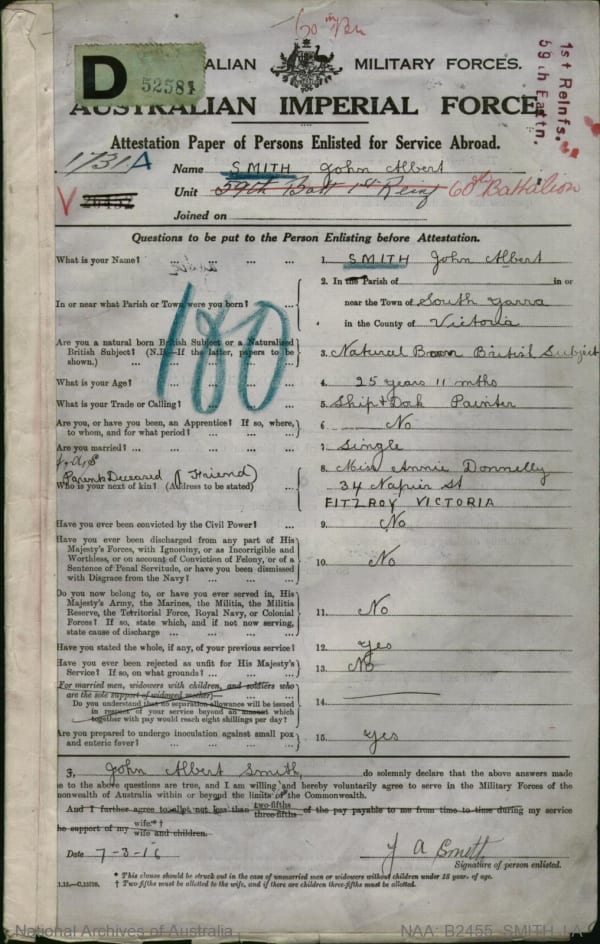 60th Bn
D 52581
ALIAN MILITARY FORCES.
AUSTRALIAN IMPERIAL FORCE
1st Reinfs.
59th Battn.
Attestation Paper of Persons Enlisted for Service Abroad.
1731A
Name SMITH John Albert
V 26452
Unit 59th Batt 1st Reinf 60th Battalion
Joined on
Questions to be put to the Person Enlisting before Attestation.
180
What is your Name? ... ... ... ... 1. SMITH John Albert
In or near what Parish or Town were you born? ... 2. In the Parish of in or
near the Town of South Yarra
in the County of Victoria
Are you a natural born British Subject or a Naturalized
British Subject? (N.B.—If the latter, papers to be
shown.) ... 3. Natural Born British Subject
What is your Age? ... ... ... 4. 25 years 11 mths
What is your Trade or Calling? ... ... ... 5. Ship & Dock Painter
Are you, or have you been, an Apprentice? If so, where,
to whom, and for what period? ... ... ... 6. No
Are you married? ... ... ... ... 7. Single
J.A.S
Parents Deceased (Friend)
Who is your next of kin? (Address to be stated) ... 8. Miss Annie Donnelly
34 Napier St
FITZROY VICTORIA
Have you ever been convicted by the Civil Power? ... 9. No
Have you ever been discharged from any part of His
Majesty's Forces, with Ignominy, or as Incorrigible and
Worthless, or on account of Conviction of Felony, or of a
Sentence of Penal Servitude, or have you been dismissed
with Disgrace from the Navy? ... ... ... 10. No
Do you now belong to, or have you ever served in, His
Majesty's Army, the Marines, the Militia, the Militia
Reserve, the Territorial Force, Royal Navy, or Colonial
Forces? If so, state which, and if not now serving,
state cause of discharge ... ... ... ... 11. No
Have you stated the whole, if any, of your previous service? 12. Yes
Have you ever been rejected as unfit for His Majesty's
Service? If so, on what grounds? ... ... ... 13. No
For married men, widowers with children, and soldiers who
are the sole support of widowed mother—
Do you understand that no separation allowance will be issued
in respect of your service beyond an amount which
together with pay would reach eight shillings per day? 14.
Are you prepared to undergo inoculation against small pox
and enteric fever? ... ... ... ... 15. Yes
I, John Albert Smith, do solemnly declare that the above answers made
me to the above questions are true, and I am willing and hereby voluntarily agree to serve in the Military Forces of the
monwealth of Australia within or beyond the limits of the Commonwealth.
And I further agree to allot not less than two-fifths three-fifths of the pay payable to me from time to time during my service
he support of my wife * † wife and children.
Date 7-3-16
J A Smith
Signature of person enlisted.
* This clause should be struck out in the case of unmarried men or widowers without children under 18 years of age.
† Two-fifths must be allotted to the wife, and if there are children three-fifths must be allotted.
National Archives of Australia NAA: B2455, SMITH J A